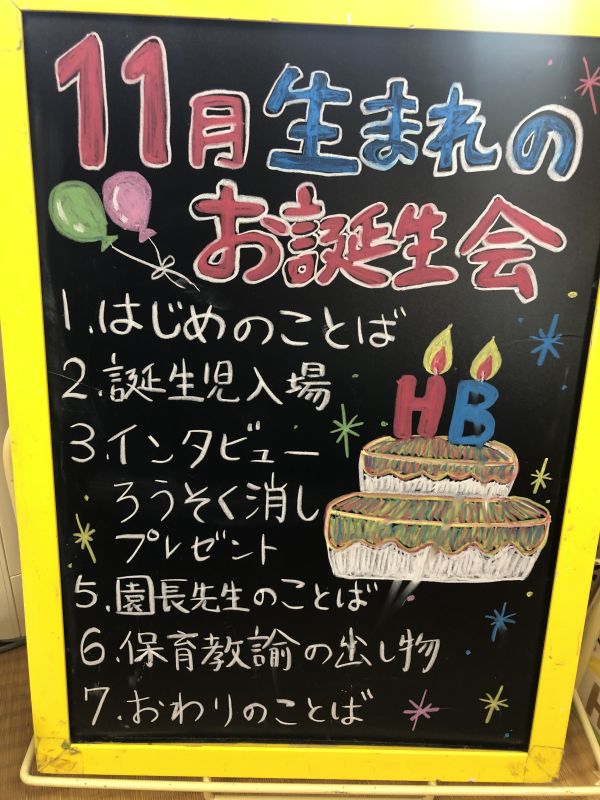 11月生まれの
お誕生会
1.はじめのことば
2.誕生児入場
3.インタビュー
ろうそく消し
プレゼント
5.園長先生のことば
6.保育教諭の出し物
7.おわりのことば
HB